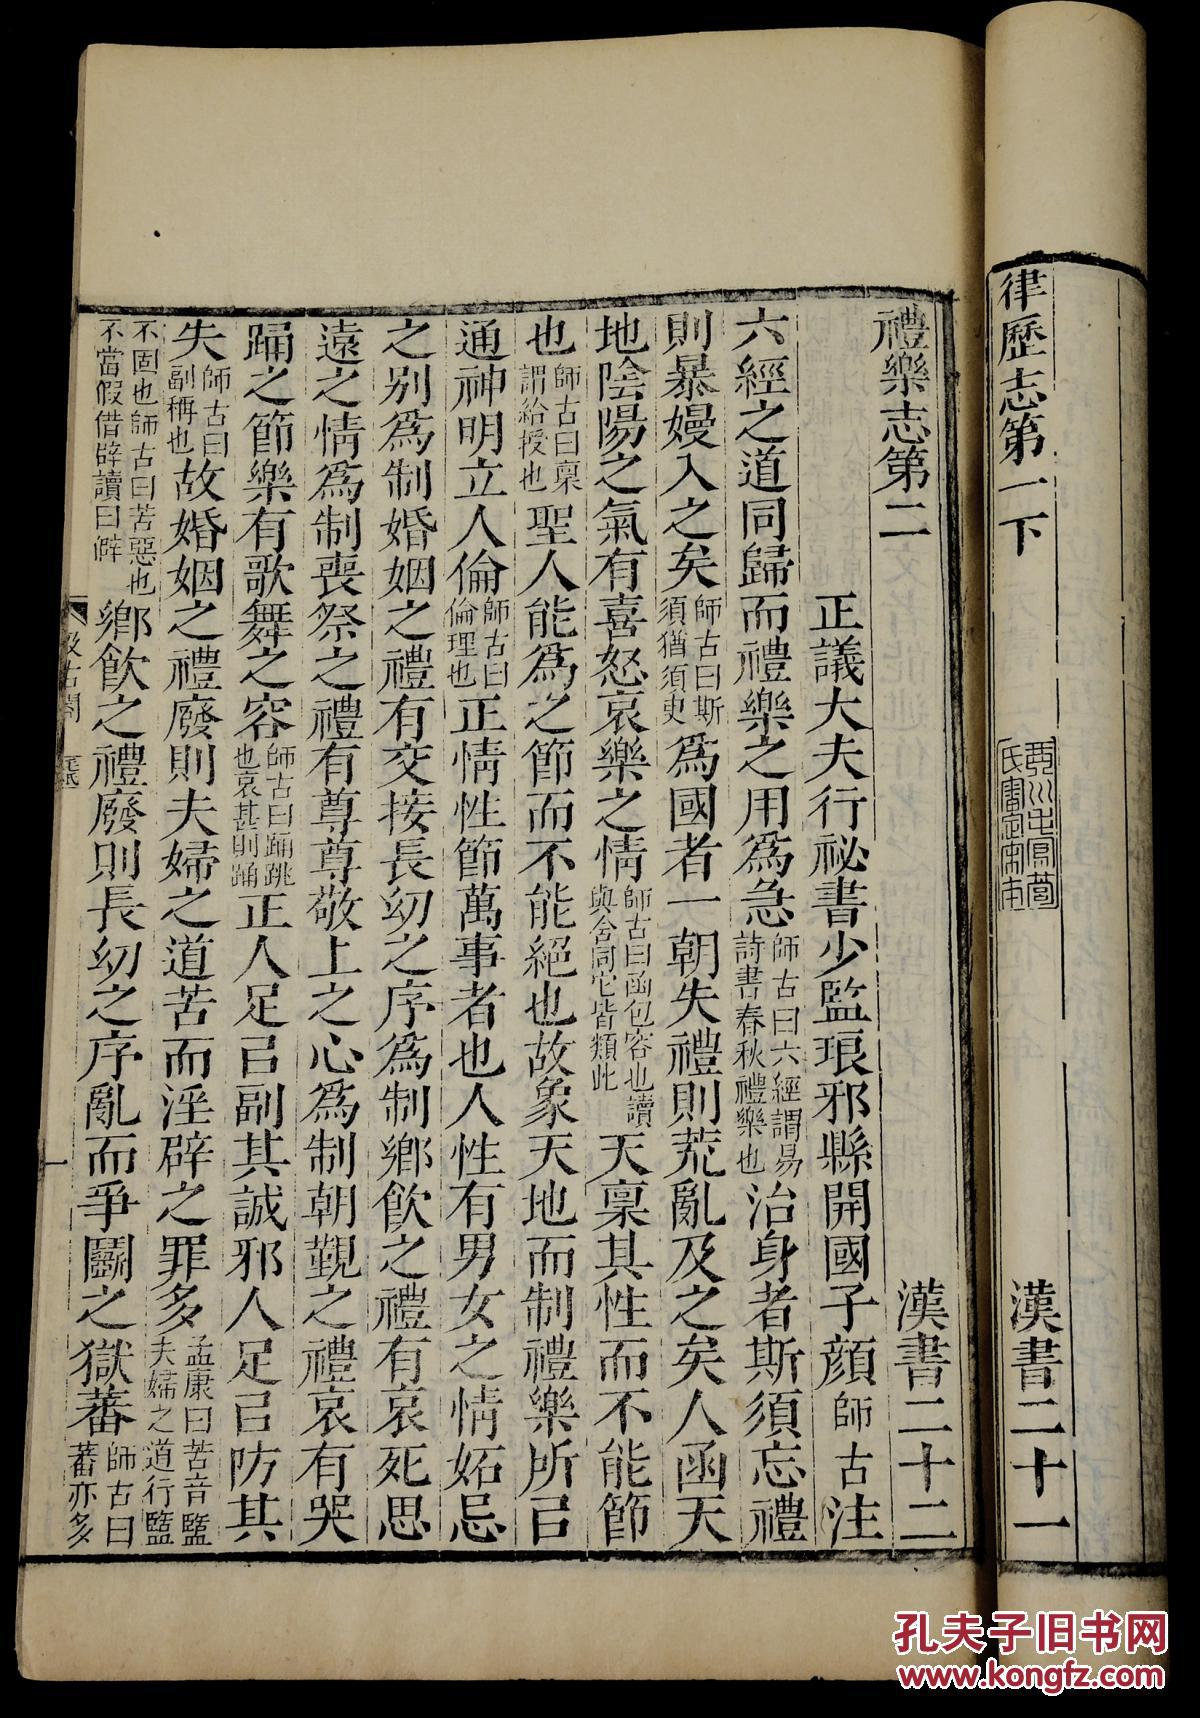 律歷志第一下　漢書二十一
禮樂志第二　漢書二十二
正議大夫行祕書少監琅邪縣開國子顏師古注
六經之道同歸而禮樂之用爲急師古曰六經謂易詩書春秋禮樂也治身者斯須忘禮
則暴嫚入之矣師古曰斯須猶須臾爲國者一朝失禮則荒亂及之矣人函天
地陰陽之氣有喜怒哀樂之情師古曰函包容也讀與含同它皆類此天稟其性而不能節
也師古曰稟謂給授也聖人能爲之節而不能絕也故象天地而制禮樂所㠯
通神明立人倫師古曰倫理也正情性節萬事者也人性有男女之情妬忌
之别爲制婚姻之禮有交接長幼之序爲制鄉飲之禮有哀死思
遠之情爲制喪祭之禮有尊尊敬上之心爲制朝覲之禮哀有哭
踊之節樂有歌舞之容師古曰踊跳也哀甚則踊正人足㠯副其誠邪人足㠯防其
失師古曰副稱也故婚姻之禮廢則夫婦之道苦而淫辟之罪多孟康曰苦音盬夫婦之道行盬
不固也師古曰苦惡也不當假借辟讀曰僻鄉飲之禮廢則長幼之序亂而爭鬭之獄蕃師古曰蕃亦多
汲古閣
一
孔夫子旧书网
www.kongfz.com